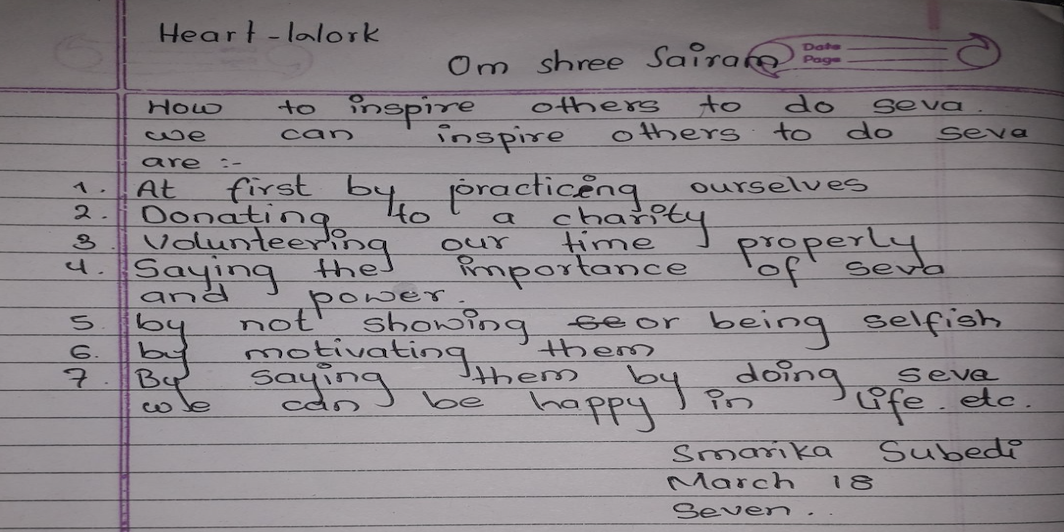 Heart-Work
Om shree Sairam
Date
Page
How to inspire others to do seva.
we can inspire others to do seva
are :-
1. At first by practiceing ourselves
2. Donating to a charity
3 Volunteering our time properly
4. Saying the importance of seva
and power.
5. by not showing se or being selfish
6. by motivating them
7. By saying them by doing seva
we can be happy in life. etc.
Smarika Subedi
March 18
Seven..